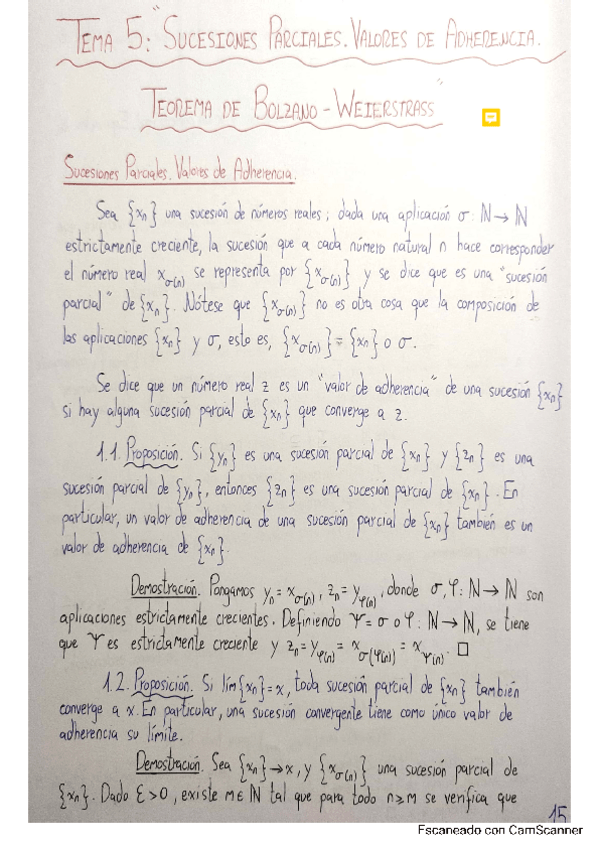 TEMA 5: "SUCESIONES PARCIALES. VALORES DE ADHERENCIA.
TEOREMA DE BOLZANO-WEIERSTRASS"
Sucesiones Parciales. Valores de Adherencia.
Sea {xₙ} una sucesión de números reales; dada una aplicación σ: ℕ → ℕ
estrictamente creciente, la sucesión que a cada número natural n hace corresponder
el número real x_σ(n) se representa por {x_σ(n)} y se dice que es una "sucesión
parcial" de {xₙ}. Nótese que {x_σ(n)} no es otra cosa que la composición de
las aplicaciones {xₙ} y σ, esto es, {x_σ(n)} = {xₙ} o σ.
Se dice que un número real z es un "valor de adherencia" de una sucesión {xₙ}
si hay alguna sucesión parcial de {xₙ} que converge a z.
1.1. Proposición. Si {yₙ} es una sucesión parcial de {xₙ} y {zₙ} es una
sucesión parcial de {yₙ}, entonces {zₙ} es una sucesión parcial de {xₙ}. En
particular, un valor de adherencia de una sucesión parcial de {xₙ} también es un
valor de adherencia de {xₙ}.
Demostración. Pongamos yₙ = x_σ(n), zₙ = y_φ(n), donde σ, φ: ℕ → ℕ son
aplicaciones estrictamente crecientes. Definiendo Ψ = σ o φ: ℕ → ℕ, se tiene
que Ψ es estrictamente creciente y zₙ = y_φ(n) = x_σ(φ(n)) = x_Ψ(n). □
1.2. Proposición. Si lím{xₙ} = x, toda sucesión parcial de {xₙ} también
converge a x. En particular, una sucesión convergente tiene como único valor de
adherencia su límite.
Demostración. Sea {xₙ} → x, y {x_σ(n)} una sucesión parcial de
{xₙ}. Dado ε > 0, existe m ∈ ℕ tal que para todo n ≥ m se verifica que
15
Escaneado con CamScanner